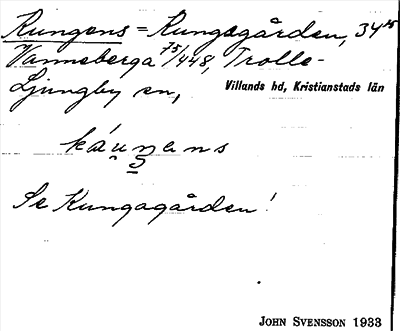 Kungens = Kungagården, 34 25
Vanneberga 75/448, Trolle-
Ljungby sn, Villands hd, Kristianstads län
káuŋans
Se Kungagården!
JOHN SVENSSON 1933